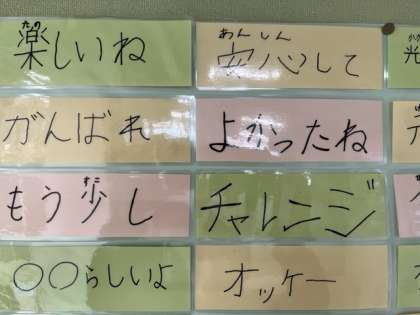 たの
楽しいね
あんしん
安心して
がんばれ
よかったね
もう少し
すこ
チャレンジ
〇〇らしいよ
オッケー
光